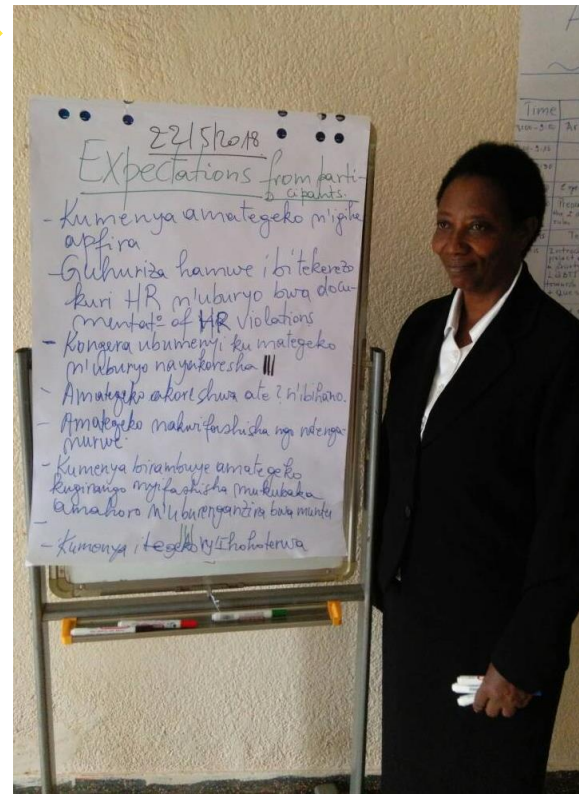 22/5/2018
Expectations from parti-
cipants.
- Kumenya amategeko n'igihe
apfira
- Guhuriza hamwe ibitekerezo
kuri HR n'uburyo bwa docu-
mentatº of HR violations
- Kongera ubumenyi ku mategeko
n'uburyo nayakoresha III
- Amategeko akoreshwa ate? n'ibihano.
- Amategeko nakwifashisha nga
nurwe.
- Kumenya birambuye amategeko
kugirango nyifashishe mukubaka
amahoro n'uburenganzira bwa muntu
-
- Kumenya itegeko ry'Ihohoterwa
Time